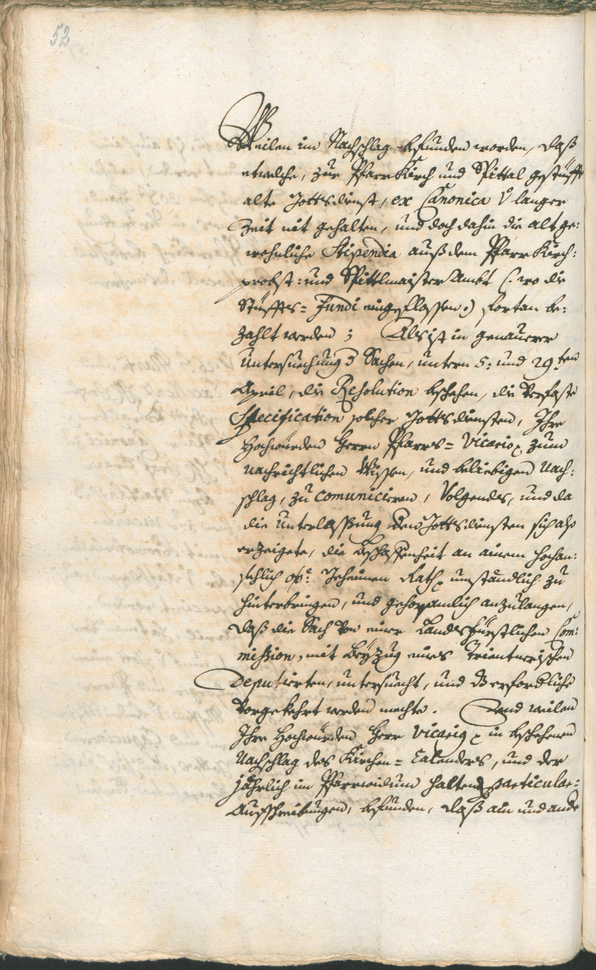 52
Weilen im Nachschlag befunden worden, daß
etwelche, zur Pfarr Kirch und Spittal gestüffte
alte Gottsdienst, ex Canonica v. langer
Zeit nit gehalten, und doch dahin die altge-
wohnliche Stipendia auß dem Pfarr Kirch-
probst: und Spittlmaister Ambt (: wo die
Stüffts= Fundi eingeflossen :) fortan be-
zahlt werden; Als ist in genauerer
Untersuechung d. Sachen, untern 5: und 29ten
April, die Resolution beschehen, die verfaste
Specification solcher Gottsdiensten, Ihro
Hochwürden Herrn Pfarrs= Vicario, zum
nachrichtlichen Wissen, und beliebigen Nach-
schlag, zu comunicieren, Volgends, und da
die Unterlassung den Gottsdiensten sich also
erzeigete, die Beschaffenheit an ainem Hochan-
sehlich oö: Geheimen Rath umständlich zu
hinterbringen, und gehorsamlich anzulangen,
daß die Sach von einer Landsfürstlichen Com-
mission, mit Beyzug eines Trientnerischen
Deputierten, untersuecht, und d. erfordliche
vorgekehrt werden mechte. Und weilen
Ihro Hochwürden Herr Vicarius in beschehenen
Nachschlag des Kirchen= Calenders, und der
jährlich im Pfarrwidum haltend particular-
Aufschreibungen, befunden, daß ain und ande